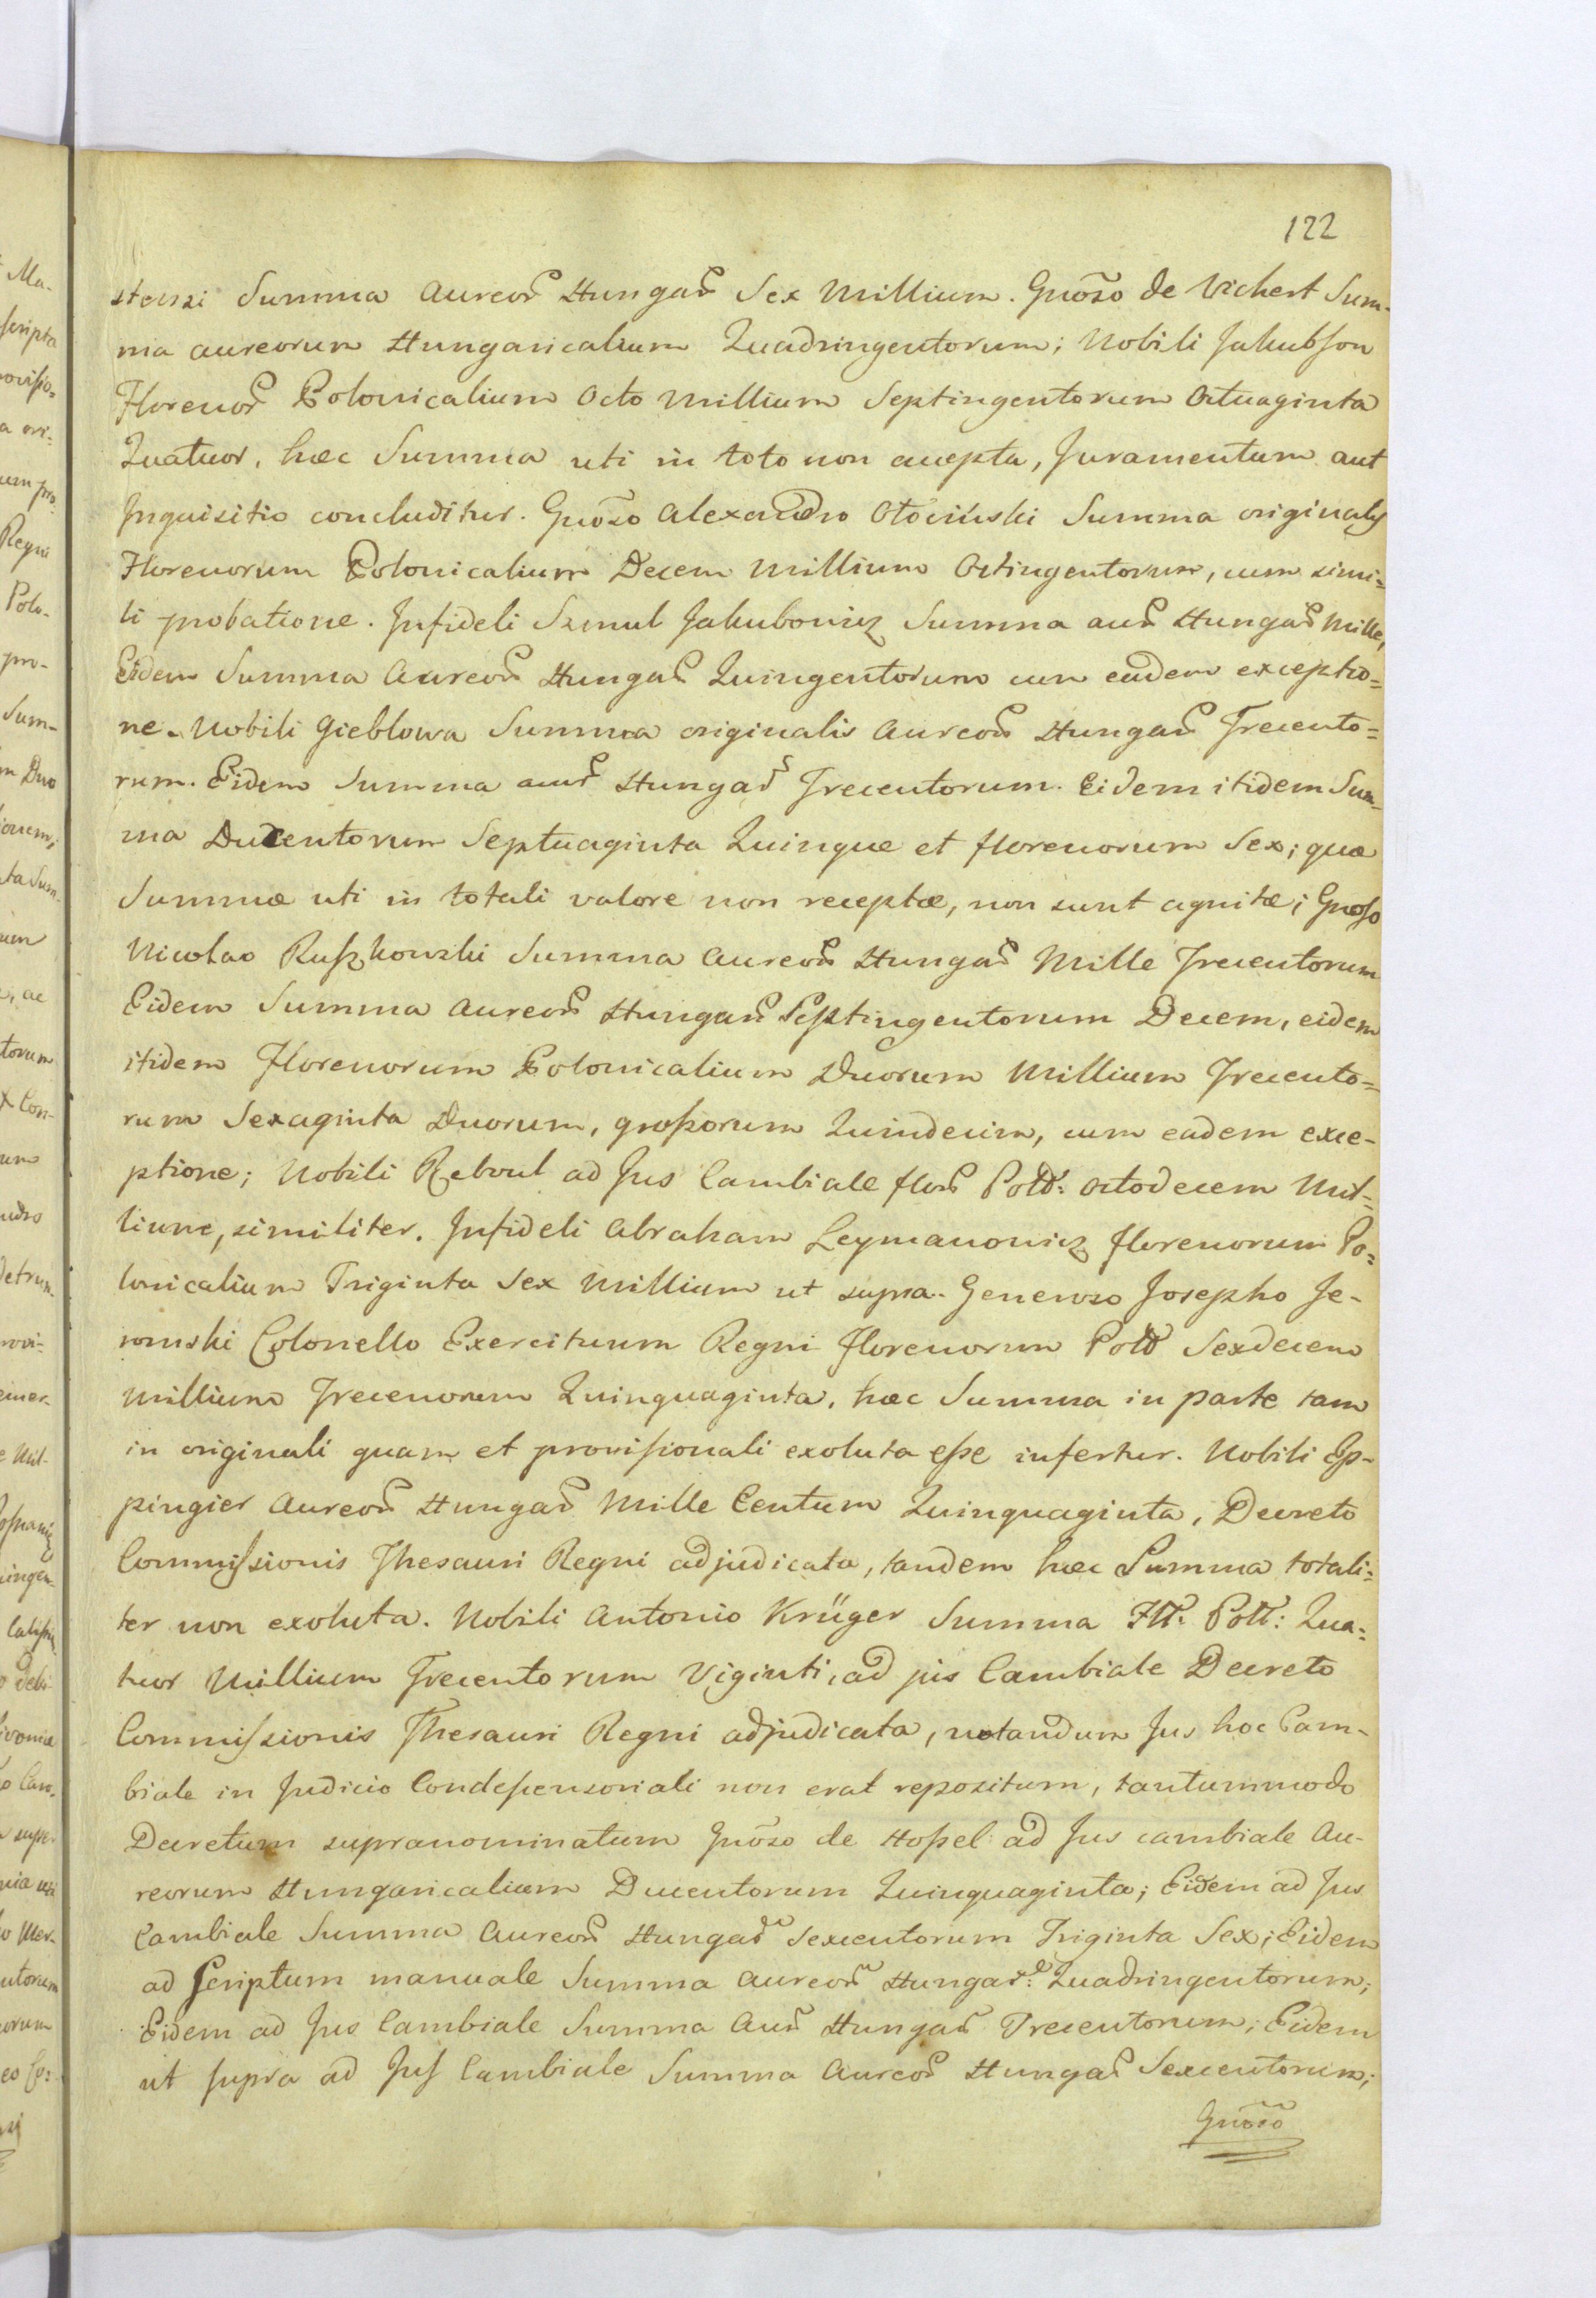 122
stenzi Summa Aureor Hungar Sex Millium. Gnoso de Vichert Sum-
ma aureorum Hungaricalium Quadringentorum; Nobili Jakubson
Florenor Polonicalium Octo Millium Septingentorum Octuaginta
Quatuor, hæc Summa uti in toto non accepta, Juramentum aut
Inquisitio concluditur. Gnoso Alexandro Otociński Summa originalis
Florenorum Polonicalium Decem Millium Octingentorum, cum simi=
li probatione. Infideli Szmul Jakubowicz Summa aur Hungar Mille,
Eidem Summa Aureor Hungar Quingentorum cum eadem exceptio=
ne. Nobili Gieblowa Summa originalis Aureor Hungar Trecento=
rum. Eidem Summa aur Hungar Trecentorum. Eidem itidem Sum-
ma Ducentorum Septuaginta Quinque et florenorum Sex; quæ
Summæ uti in totali valore non receptæ, non sunt agnitæ; Gnoso
Nicolao Ruszkowski Summa Aureor Hungar Mille Trecentorum
Eidem Summa Aureor Hungar Septingentorum Decem, eidem
itidem Florenorum Polonicalium Duorum Millium Trecento=
rum Sexaginta Duorum, grossorum Quindecim, cum eadem exce-
ptione; Nobili Reboul ad Jus Cambiale flor Poll: Octodecem Mil=
lium, similiter. Infideli Abraham Leymanowicz florenorum Po=
lonicalium Triginta Sex Millium ut supra. Generoso Josepho Je-
romski Colonello Exercituum Regni Florenorum Poll Sexdecem
Millium Trecenorum Quinquaginta, hæc Summa in parte tam
in originali quam et provisionali exoluta esse infertur. Nobili Ep-
pingier Aureor Hungar Mille Centum Quinquaginta, Decreto
Commissionis Thesauri Regni adjudicata, tandem hæc Summa totali=
ter non exoluta. Nobili Antonio Krüger Summa Fll: Poll: Qua=
tuor Millium Trecentorum Viginti, ad jus Cambiale Decreto
Commissionis Thesauri Regni adjudicata, notandum Jus hoc Cam-
biale in Judicio Condescensoriali non erat repositum, tantummodo
Decretum supranominatum Gnoso de Hossel ad Jus cambiale Au-
reorum Hungaricalium Ducentorum Quinquaginta; Eidem ad Jus
Cambiale Summa Aureor Hungar Sexcentorum Triginta Sex; Eidem
ad Scriptum manuale Summa Aureor Hungar: Quadringentorum;
Eidem ad Jus Cambiale Summa Aur Hungar Trecentorum; Eidem
ut supra ad Jus Cambiale Summa Aureor Hungar Sexcentorum;
Gnoso